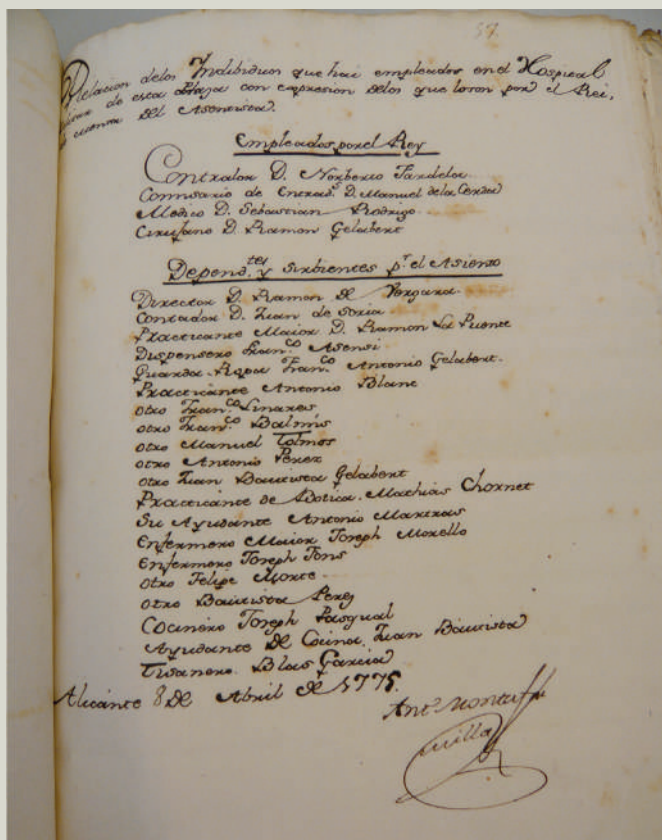 57.
Relacion delos Indibiduos que hai empleados en el Hospital
de esta Plaza con expresion delos que loson por el Rei,
cuenta del Asentista.
Empleados por el Rey
Contralor D. Norberto Fardela
Comisario de Entrads. D. Manuel dela Cerda
Medico D. Sebastian Rodrigo
Cirujano D. Ramon Gelabert
Dependtes. y Sirbientes pr. el Asiento
Director D. Ramon de Vergara
Contador D. Juan de Soria
Practicante Maior D. Ramon La Puente
Dispensero Franco. Asensi
Guarda-Ropa Franco. Antonio Gelabert.
Practicante Antonio Blanc
otro Franco. Linares
otro Franco. Balmis
otro Manuel Tolmos
otro Antonio Perez
otro Juan Bautista Gelabert
Practicante de Botica. Mathias Chornet
Su Ayudante Antonio Martras
Enfermero Maior Joseph Morello
Enfermero Joseph Fons
otro Felipe Monte
otro Bautista Perez
Cocinero Joseph Pasqual
Ayudante de Cocina, Juan Bautista
Tisanero. Blas Garcia
Alicante 8 de Abril de 1775.
Anto.